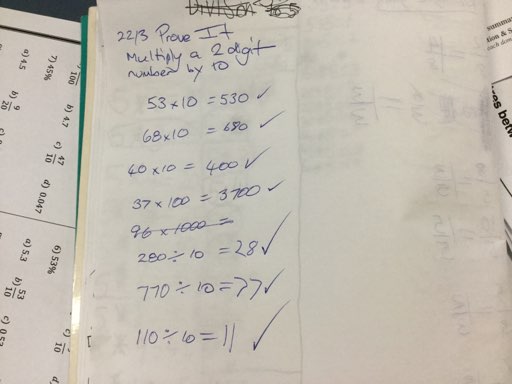 DIVISON
22/3 Prove It
Multiply a 2 digit
number by 10
53 × 10 = 530 ✓
68 × 10 = 680 ✓
40 × 10 = 400 ✓
37 × 100 = 3700 ✓
96 × 1000 =
280 ÷ 10 = 28 ✓
770 ÷ 10 = 77 ✓
110 ÷ 10 = 11 ✓
100
7) 45%
a) 4.5
b) 9/20
b) 4.7
c) 47/10
d) 0.047
6) 53%
a) 5.3
b) 53/10
c) 0.53
10
d.
summa
tion & S
each do
es betw